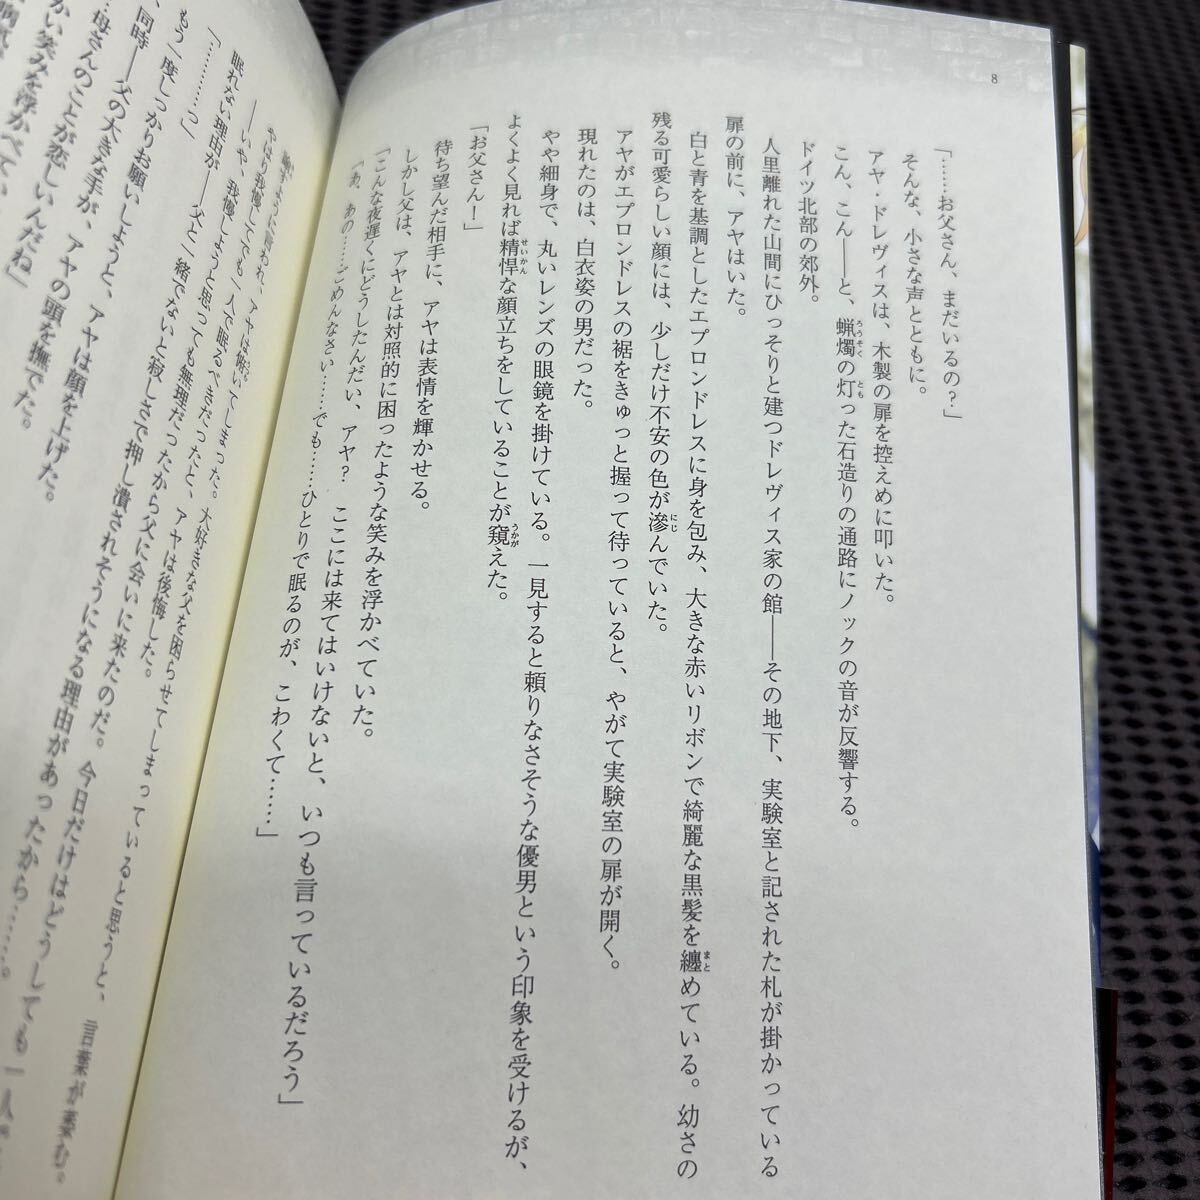 8
「……お父さん、まだいるの？」
そんな、小さな声とともに。
アヤ・ドレヴィスは、木製の扉を控えめに叩いた。
こん、こん――と、蝋燭の灯った石造りの通路にノックの音が反響する。
ドイツ北部の郊外。
人里離れた山間にひっそりと建つドレヴィス家の館――その地下、実験室と記された札が掛かっている
扉の前に、アヤはいた。
白と青を基調としたエプロンドレスに身を包み、大きな赤いリボンで綺麗な黒髪を纏めている。幼さの
残る可愛らしい顔には、少しだけ不安の色が滲んでいた。
アヤがエプロンドレスの裾をきゅっと握って待っていると、やがて実験室の扉が開く。
現れたのは、白衣姿の男だった。
やや細身で、丸いレンズの眼鏡を掛けている。一見すると頼りなさそうな優男という印象を受けるが、
よくよく見れば精悍な顔立ちをしていることが窺えた。
「お父さん！」
待ち望んだ相手に、アヤは表情を輝かせる。
しかし父は、アヤとは対照的に困ったような笑みを浮かべていた。
「こんな夜遅くにどうしたんだい、アヤ？　ここには来てはいけないと、いつも言っているだろう」
「あ、あの……ごめんなさい……でも……ひとりで眠るのが、こわくて……」
ように言われ、アヤは俯いてしまった。大好きな父を困らせてしまっていると思うと、言葉が萎む。
やはり我慢してでも一人で眠るべきだったと、アヤは後悔した。
――いや、我慢しようと思っても無理だったから父に会いに来たのだ。今日だけはどうしても一人
眠れない理由が――父と一緒でないと寂しさで押し潰されそうになる理由があったから……。
「…………っ」
もう一度しっかりお願いしようと、アヤは顔を上げた。
同時――父の大きな手が、アヤの頭を撫でた。
母さんのことが恋しいんだね」
かい笑みを浮かべてい
病気